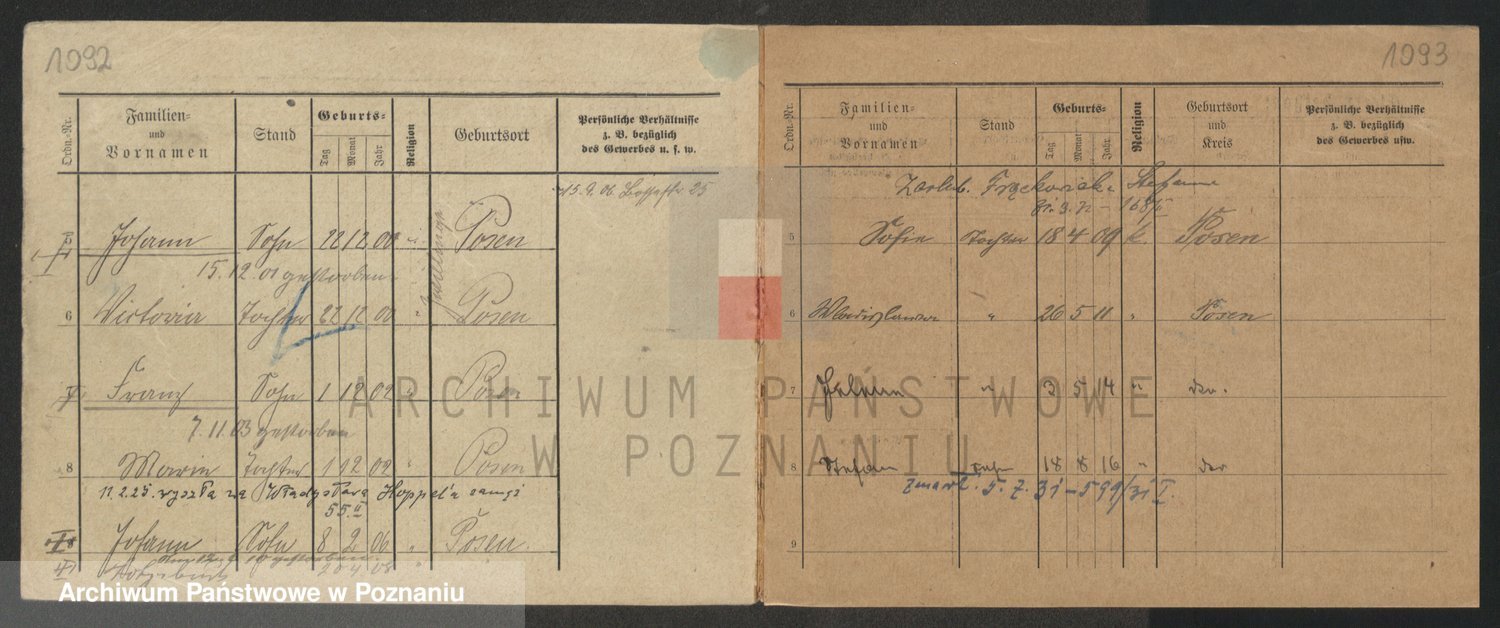 1092
Ordn.-Nr.
Familien-
und
Vornamen
Stand
Geburts-
Tag
Monat
Jahr
Religion
Geburtsort
Persönliche Verhältnisse
z. B. bezüglich
des Gewerbes u. s. w.
15.9.06 25
Johann Sohn 22 12 00 Posen
15.12.01 gestorben
6 Victoria Tochter 22 12 00 " Posen
Franz Sohn 1 12 02 " Posen
7.11.03 gestorben
8 Maria Tochter 1 12 02 " Posen
11.2.25. wyszła za Władysława Hoppel'a
55.II
Johann Sohn 8 2 06 " Posen.
gestorben
20 4 08 "
1093
Ordn.-Nr.
Familien-
und
Vornamen
Stand
Geburts-
Tag
Monat
Jahr
Religion
Geburtsort
und
Kreis
Persönliche Verhältnisse
z. B. bezüglich
des Gewerbes usw.
168/II
5 Sofie Tochter 18 4 09 k. Posen
6 Wladislawa " 26 5 11 " Posen
7 " 3 5 14 "
8 Stefan 18 8 16 "
zmarł. 5.7.31 – 599/31 I.
9
ARCHIWUM PAŃSTWOWE
W POZNANIU
Archiwum Państwowe w Poznaniu